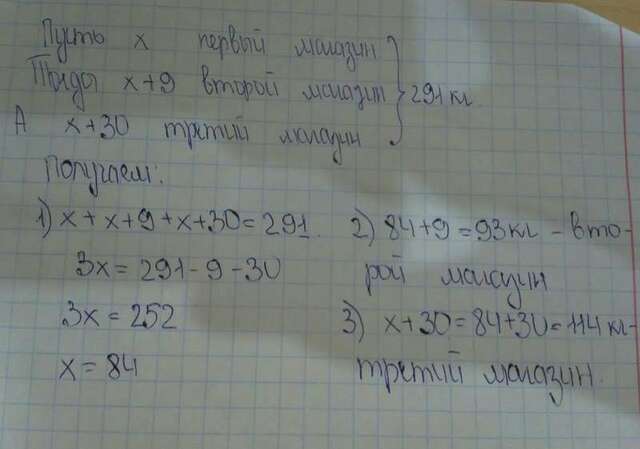 Пусть x первый магазин
Тогда x+9 второй магазин } 291 кг.
А x+30 третий магазин
Получаем:
1) x+x+9+x+30=291. 2) 84+9=93кг - вто-
3x=291-9-30 рой магазин
3x=252 3) x+30=84+30=114кг-
x=84 третий магазин.